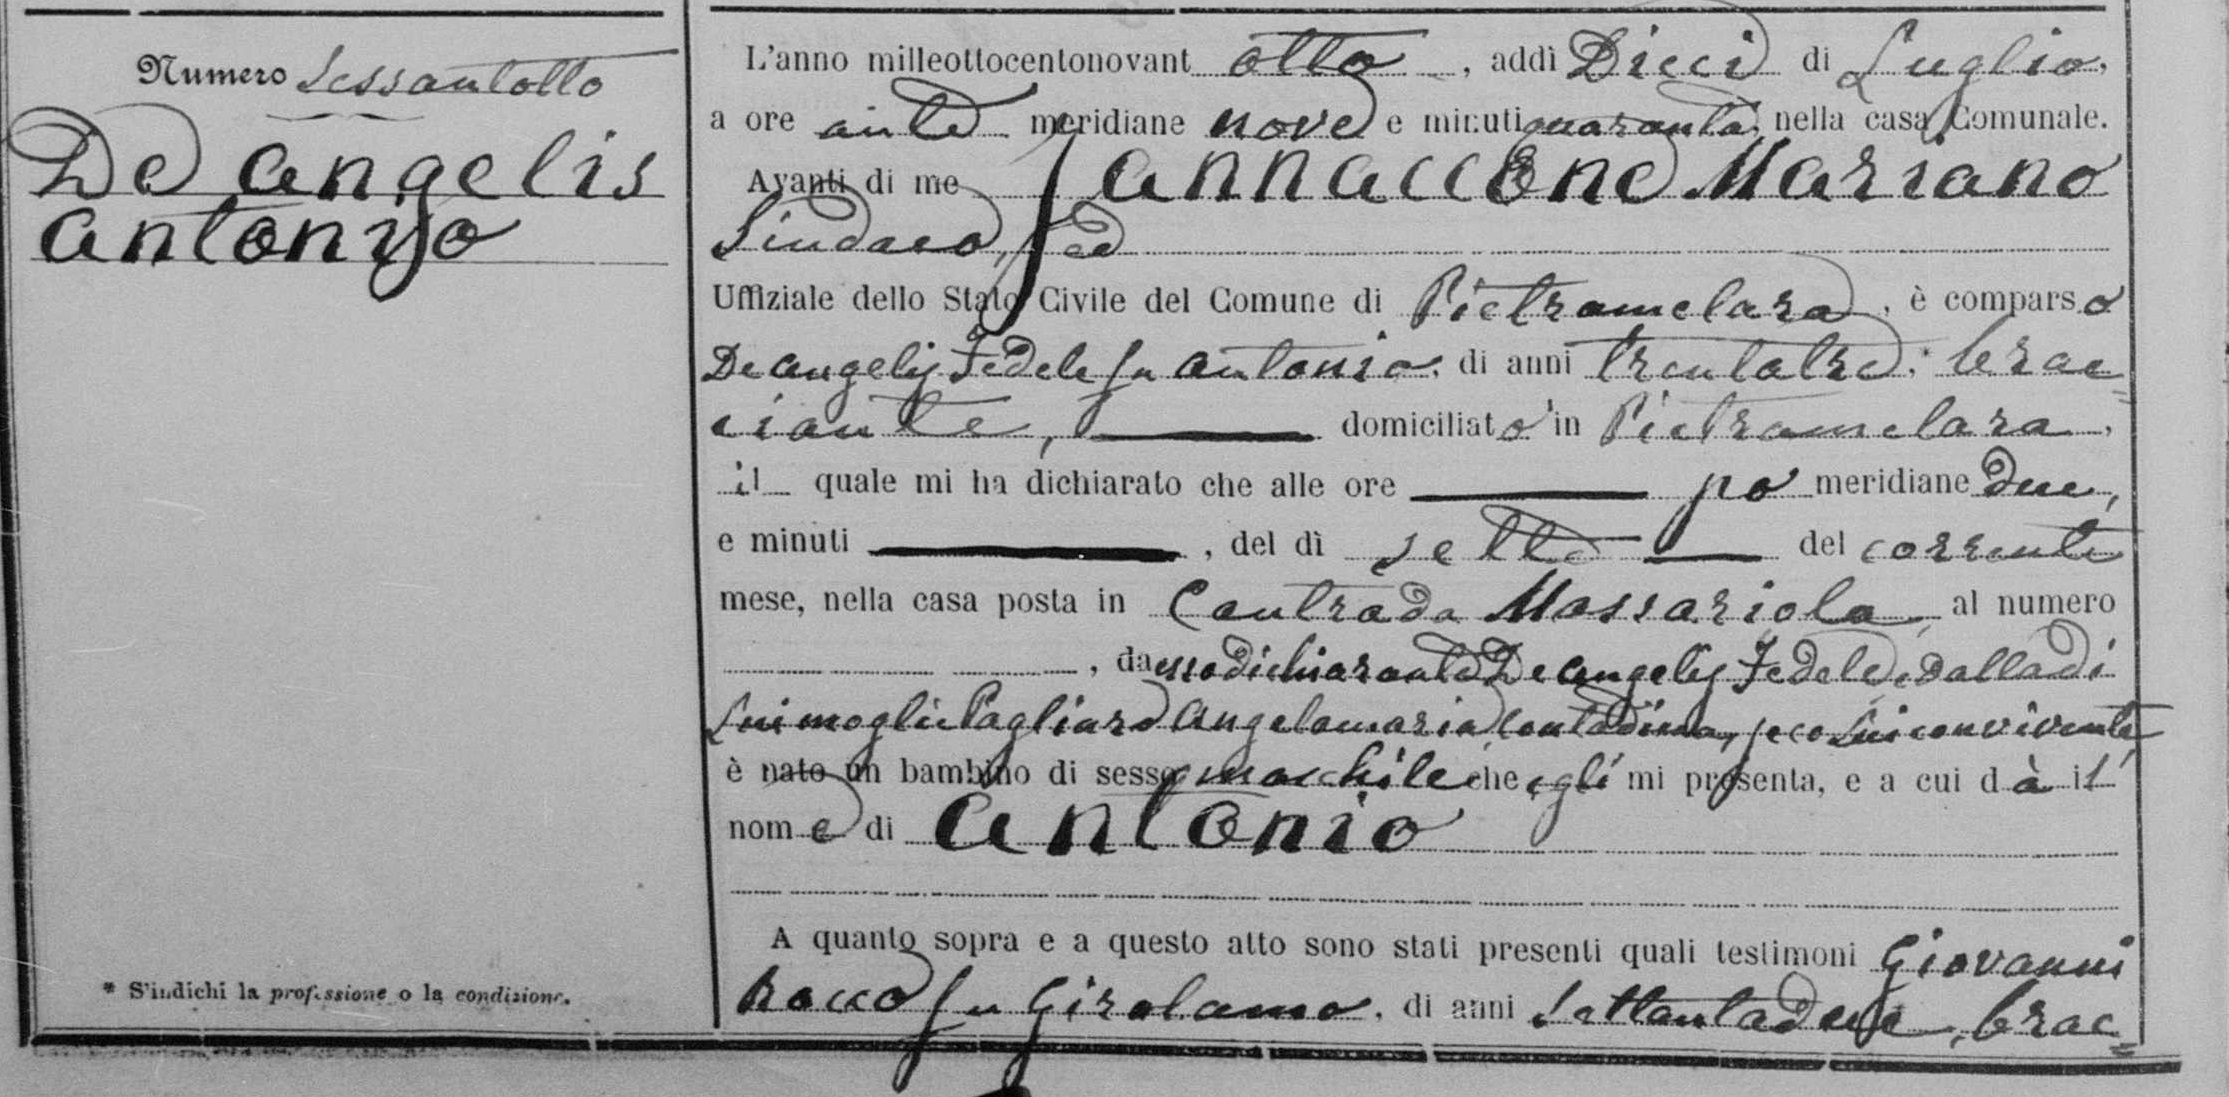 Numero Sessantotto
De Angelis
Antonio
* S'indichi la professione o la condizione.
L'anno milleottocentonovant otto, addì Dieci di Luglio,
a ore ante meridiane nove e minuti quaranta, nella casa Comunale.
Avanti di me Jannaccone Mariano
Sindaco, ed
Uffiziale dello Stato Civile del Comune di Pietramelara, è comparso
De Angelis Fedele fu Antonio, di anni trentatre, brac=
ciante, domiciliato in Pietramelara,
il quale mi ha dichiarato che alle ore po meridiane due,
e minuti , del dì sette del corrente
mese, nella casa posta in Contrada Massariola, al numero
, da esso dichiarante De Angelis Fedele, e dalla di
Lui moglie Pagliaro Angelamaria, contadina, seco Lui convivente,
è nato un bambino di sesso maschile che egli mi presenta, e a cui dà il
nome di Antonio
A quanto sopra e a questo atto sono stati presenti quali testimoni Giovanni
Rocco fu Girolamo, di anni Settantadue, brac=